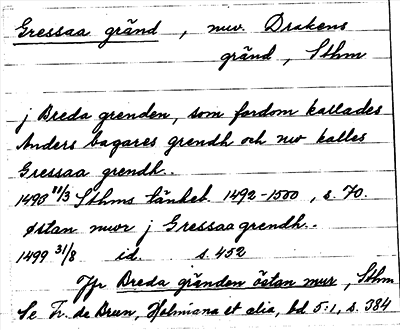 Gressaa gränd, nuv. Drakens
gränd, Sthm
j Breda grenden, som fordom kallades
Anders bagares grendh och nw kalles
Gressaa grendh..
1493 11/3 Sthms tänkeb. 1492-1500, s. 70.
østan mwr j Gressaagrendh..
1499 31/8 id. s. 452
Jfr Breda gränden östan mur, Sthm
Se Fr. de Brun, Holmiana et alia, bd 5:1, s. 384